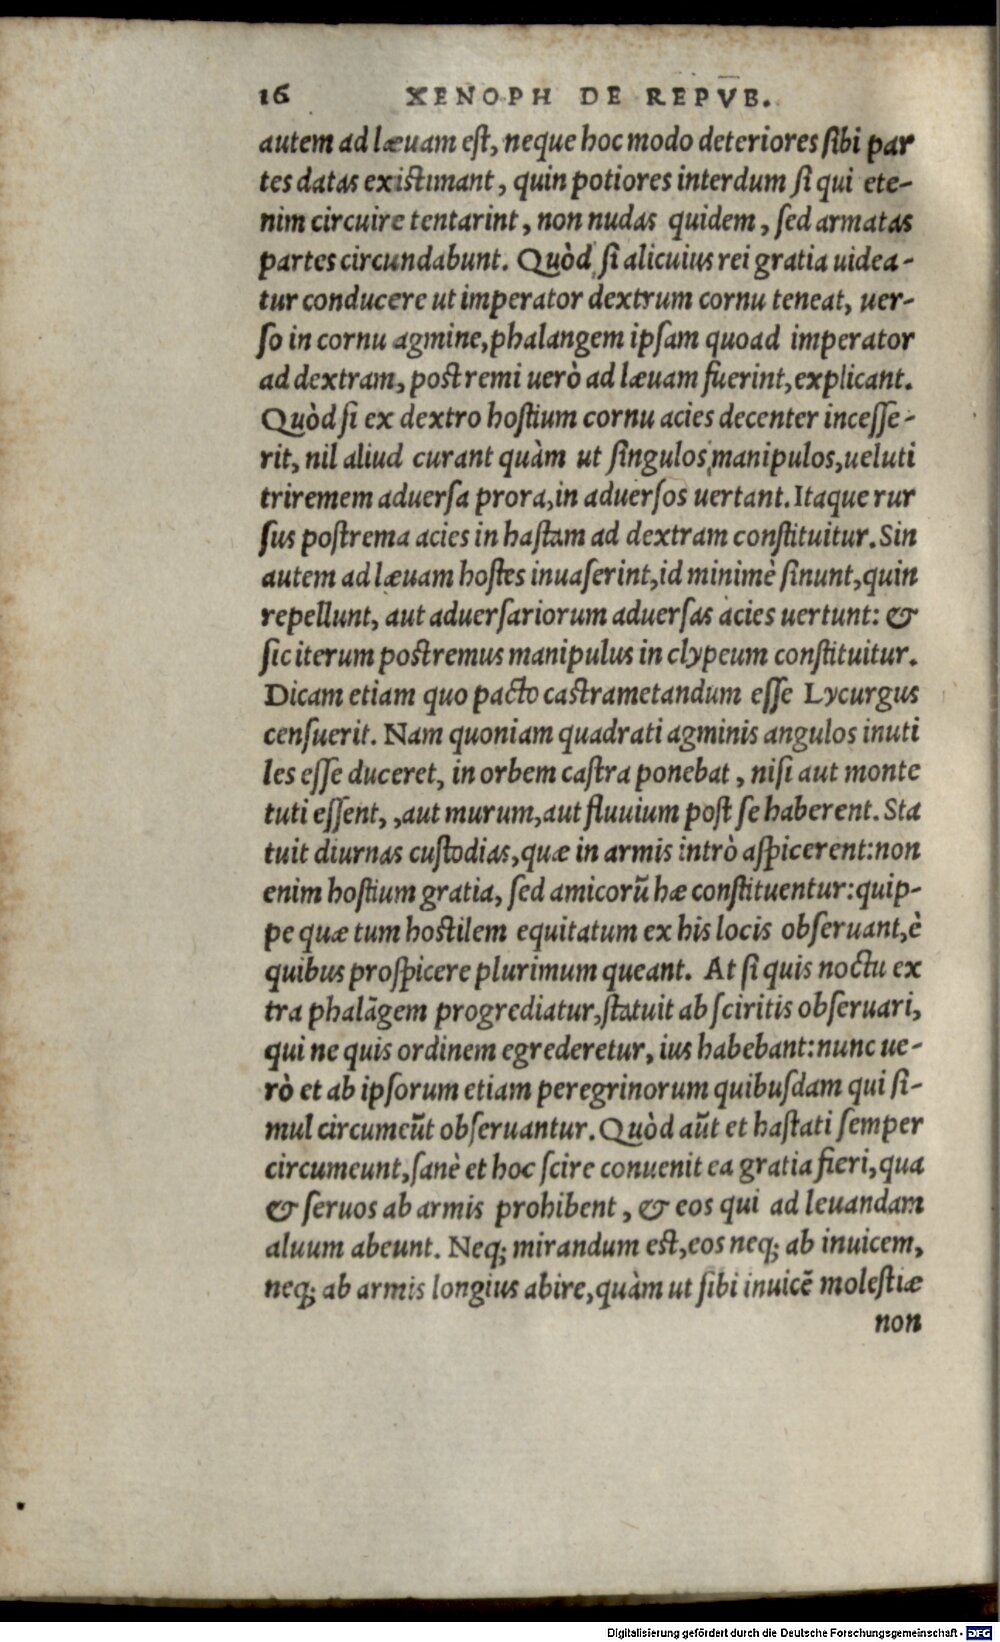 16 XENOPH DE REPVB.
autem ad læuam est, neque hoc modo deteriores sibi par
tes datas existimant, quin potiores interdum si qui ete-
nim circuire tentarint, non nudas quidem, sed armatas
partes circundabunt. Quòd si alicuius rei gratia uidea-
tur conducere ut imperator dextrum cornu teneat, uer-
so in cornu agmine, phalangem ipsam quoad imperator
ad dextram, postremi uerò ad læuam fuerint, explicant.
Quòd si ex dextro hostium cornu acies decenter incesse-
rit, nil aliud curant quàm ut singulos manipulos, ueluti
triremem aduersa prora, in aduersos uertant. Itaque rur
sus postrema acies in hastam ad dextram constituitur. Sin
autem ad læuam hostes inuaserint, id minimè sinunt, quin
repellunt, aut aduersariorum aduersas acies uertunt: &
sic iterum postremus manipulus in clypeum constituitur.
Dicam etiam quo pacto castrametandum esse Lycurgus
censuerit. Nam quoniam quadrati agminis angulos inuti
les esse duceret, in orbem castra ponebat, nisi aut monte
tuti essent, ,aut murum, aut fluuium post se haberent. Sta
tuit diurnas custodias, quæ in armis intrò aspicerent: non
enim hostium gratia, sed amicorũ hæ constituentur: quip-
pe quæ tum hostilem equitatum ex his locis obseruant, è
quibus prospicere plurimum queant. At si quis noctu ex
tra phalãgem progrediatur, statuit ab sciritis obseruari,
qui ne quis ordinem egrederetur, ius habebant: nunc ue-
rò et ab ipsorum etiam peregrinorum quibusdam qui si-
mul circumeũt obseruantur. Quòd aũt et hastati semper
circumeunt, sanè et hoc scire conuenit ea gratia fieri, qua
& seruos ab armis prohibent, & eos qui ad leuandam
aluum abeunt. Neq; mirandum est, eos neq; ab inuicem,
neq; ab armis longius abire, quàm ut sibi inuicẽ molestiæ
non
Digitalisierung gefördert durch die Deutsche Forschungsgemeinschaft - DFG